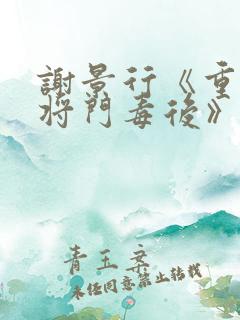 謝景行《重生
將門毒後》
青玉案
未經同意禁止轉載